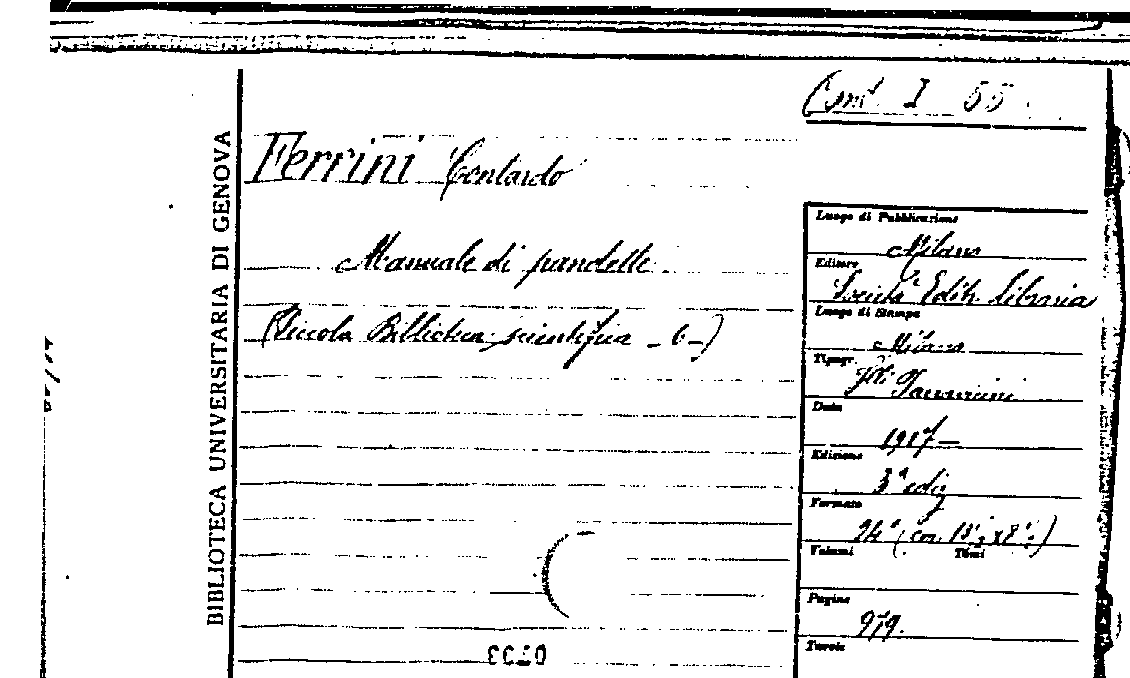 Cons. I 55
BIBLIOTECA UNIVERSITARIA DI GENOVA
Ferrini Contardo
Manuale di pandette.
(Piccola Biblioteca scientifica - 6 -)
Luogo di Pubblicazione
Milano
Editore
Società Edit. libraria
Luogo di Stampa
Milano
Tipogr.
Data
1917
Edizione
3ª ediz
Formato
24° (cm.
Volumi Tomi
Pagine
979.
Tavole